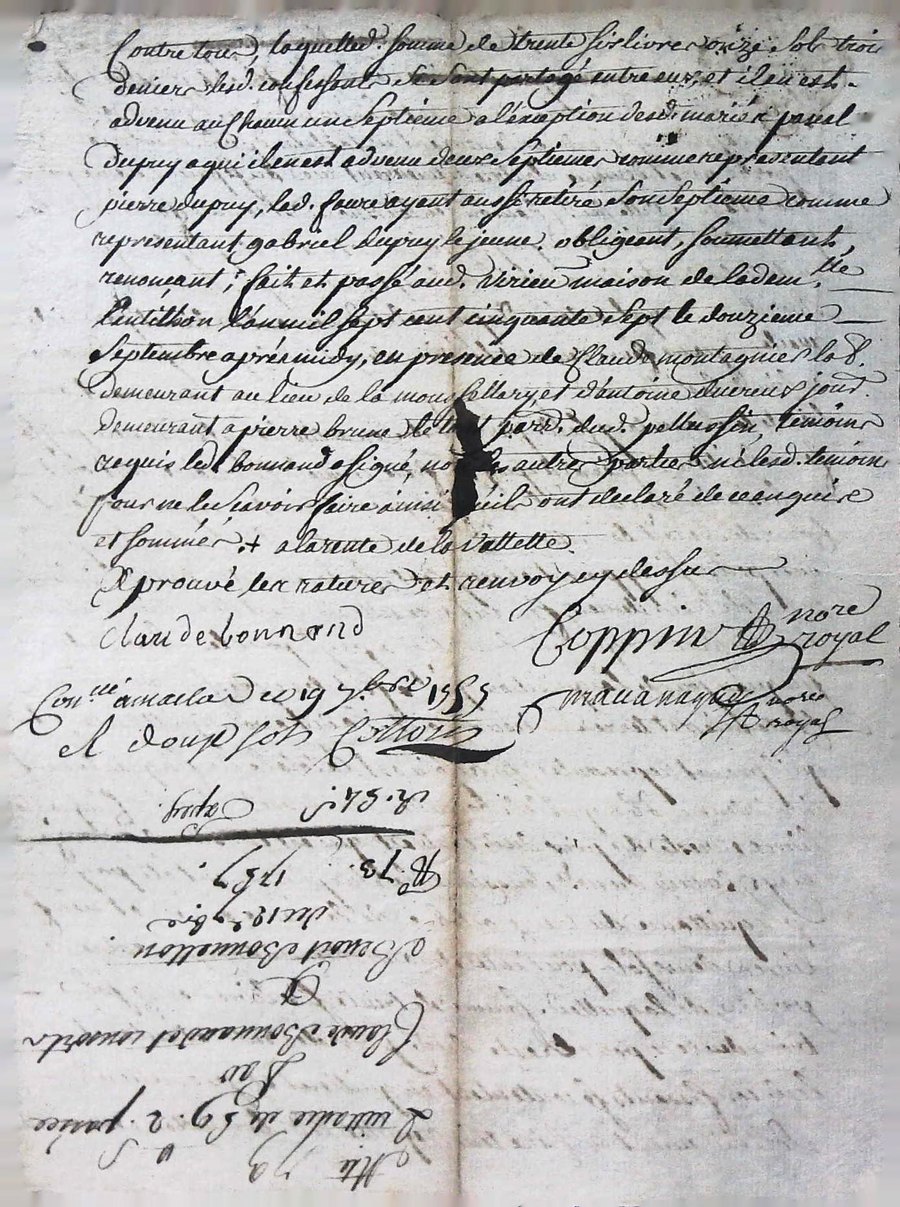 Contre tous, laquelled. somme de trente six livres onze sols trois
deniers lesd. confessants se sont partagé entre eux, et il en est
advenu au Chacun un Septieme a l'éxception desd. mariés pascal
dupuy a qui il en est advenu deux Septiemes comme representant
pierre dupuy, led. faure ayant aussi retiré son Septieme comme
representant gabriel dupuy le jeune. obligeant, soumettant,
renonçant; fait et passé aud. virieu maison de la dem.lle
Lentilhon L'an mil sept cent cinquante sept le douzieme
Septembre aprés midy, en presence de Claude montagnier lab.
demeurant au lieu de la et d'antoine ducreux jour.
demeurant a pierre brune le tout parr. dud. pellussin, temoins
requis led. bonnand a signé, non les autres parties ni lesd. temoins
pour ne le scavoir faire ainsi qu'ils ont declaré de ce enquis
et sommés. + a la rente de la Vallette.
Approuvé les ratures et renvoy cy dessus
Claude bonnand
Coppin nore
royal
mavanagay nore
royal
Con.llé a maclas ce 19 7bre 1757
R douze sols Cotton
Mte 79
Quittance de 59. 2. s. passée
Par
Claude Bonnand et consorts
A
Benoit Bonnetton
du 12e 7bre
1757.
No 73.